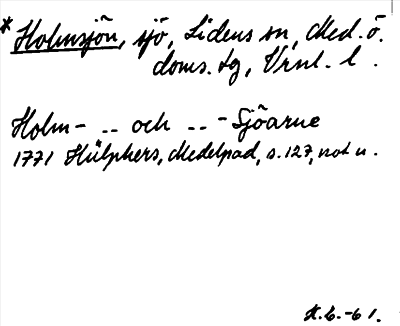 * Holmsjön, sjö, Lidens sn, Med. ö.
doms. tg, Vrnl. l .
Holm- .. och .. - Sjöarne
1771 Hülphers, Medelpad, s. 127, not u .
H. 6. -61.